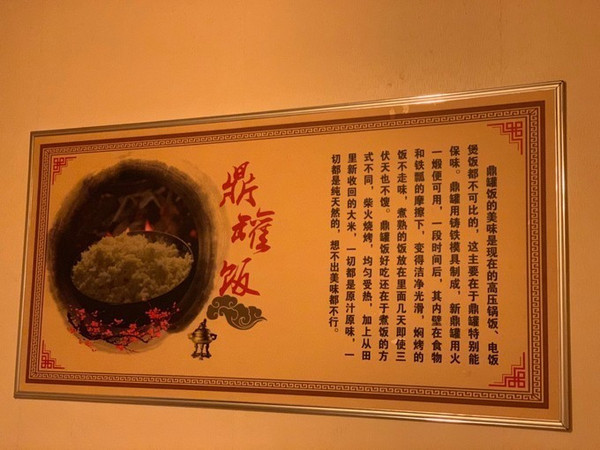 鼎罐饭
鼎罐饭的美味是现在的高压锅饭、电饭
煲饭都不可比的，这主要在于鼎罐特别能
保味。鼎罐用铸铁模具制成，新鼎罐用火
一煅便可用，一段时间后，其内壁在食物
和铁瓢的摩擦下，变得洁净光滑，焖烤的
饭不走味，煮熟的饭放在里面几天即使三
伏天也不馊。鼎罐饭好吃还在于煮饭的方
式不同，柴火烧烤，均匀受热，加上从田
里新收回的大米，一切都是原汁原味，一
切都是纯天然的，想不出美味都不行。